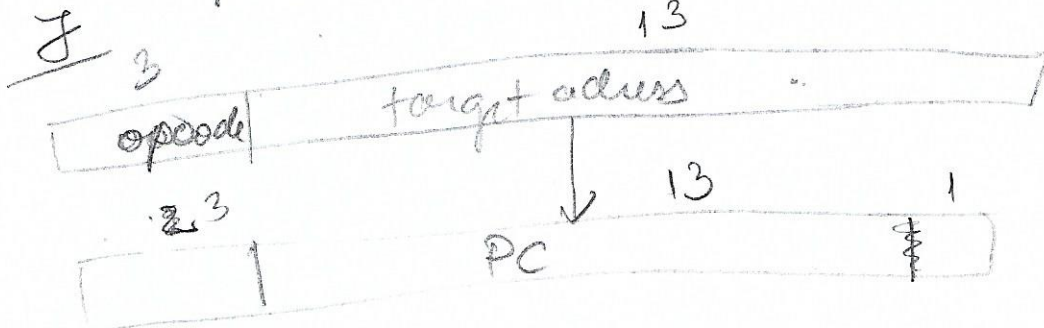 J
3 13
opcode target adress
3 13 1
PC